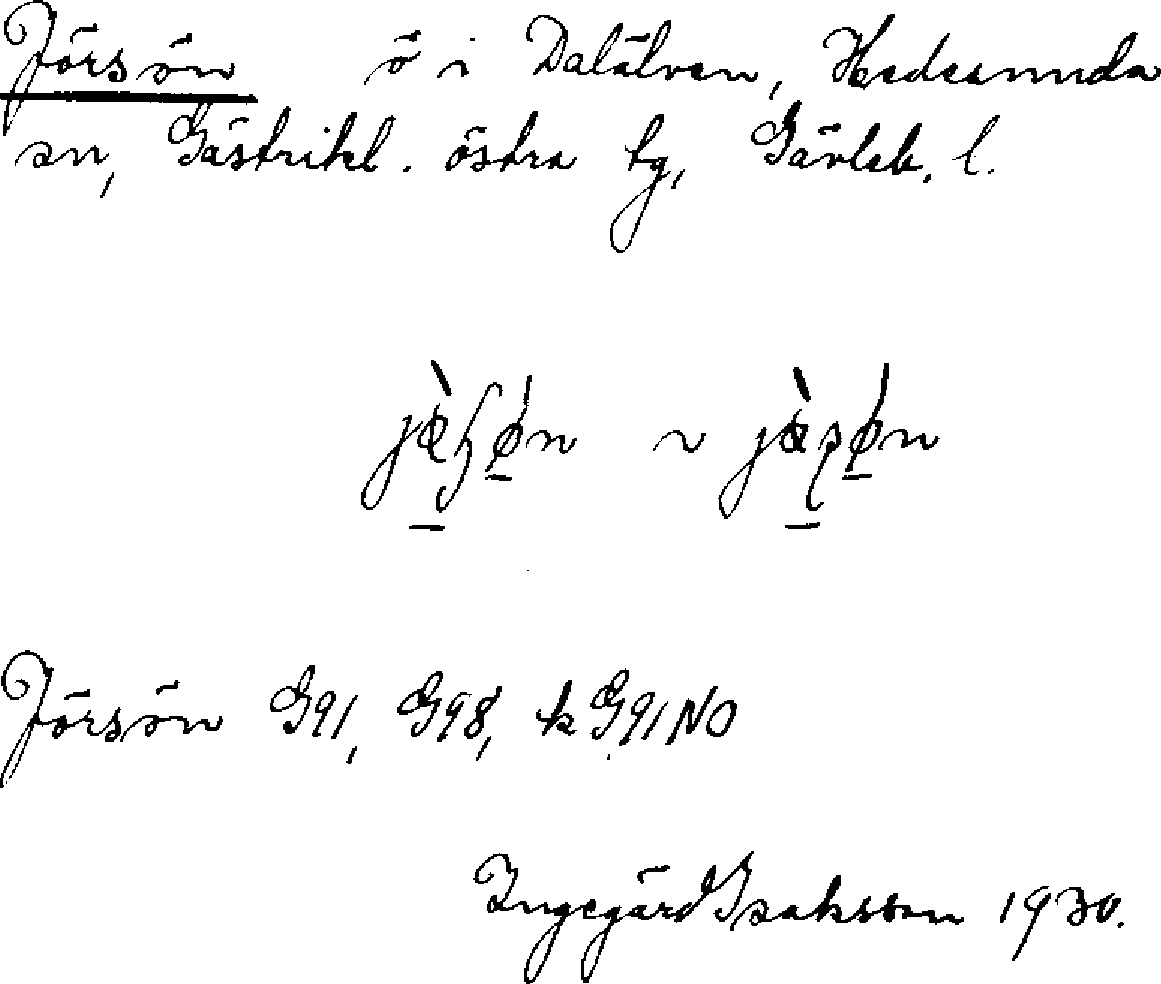 Jörsön ö i Dalälven, Hedesunda
sn, Gästrikl. östra tg, Gävleb. l.
Jörsön G91, G98, k G91NO
Ingegärd Isaksson 1930.